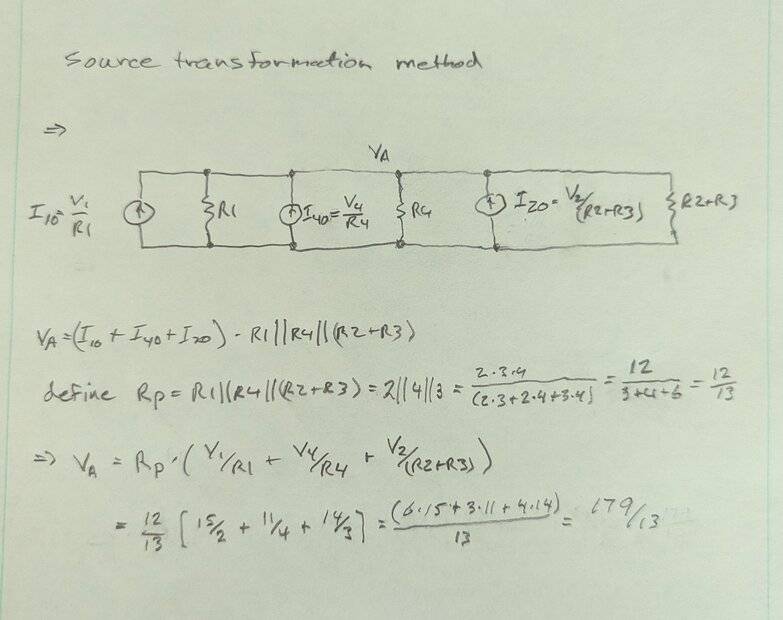 Source transformation method
⇒
VA
I10 = V1/R1
R1
I40 = V4/R4
R4
I20 = V2/(R2+R3)
R2+R3
VA = (I10 + I40 + I20) · R1||R4||(R2+R3)
define Rp = R1||R4||(R2+R3) = 2||4||3 = 2·3·4/(2·3+2·4+3·4) = 12/3+4+6 = 12/13
⇒ VA = Rp · (V1/R1 + V4/R4 + V2/(R2+R3))
= 12/13 [15/2 + 11/4 + 14/3] = (6·15+3·11+4·14)/13 = 179/13